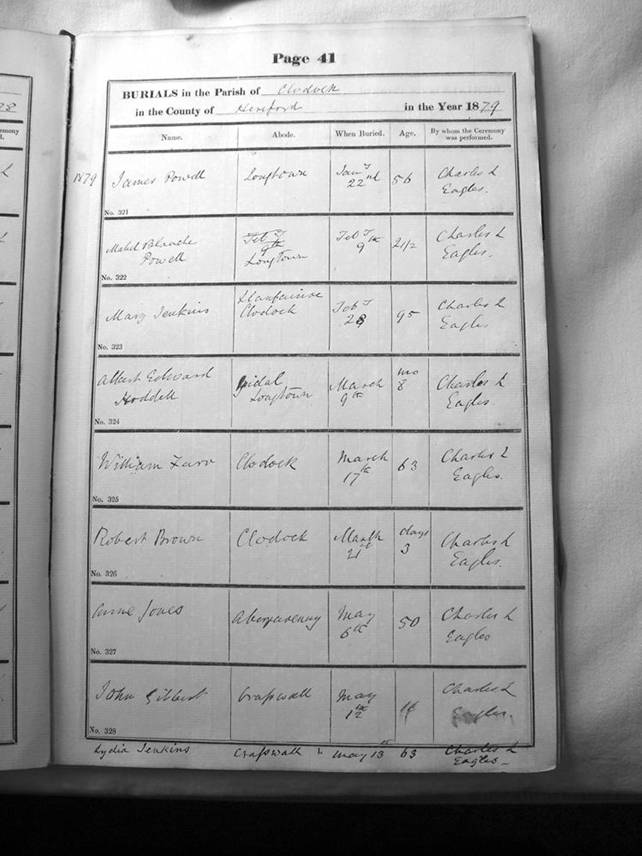 Page 41
BURIALS in the Parish of Clodock
in the County of Hereford in the Year 1879
Name. Abode. When Buried. Age. By whom the Ceremony was performed.
1879 James Powell Longtown Jany 22nd 56 Charles L Eagles.
No. 321
Mabel Blanche Powell Feby 9th Longtown Feby 9th 2 1/2 Charles L Eagles.
No. 322
Mary Jenkins Clodock Feby 28 95 Charles L Eagles
No. 323
Albert Edward Hoddell Longtown March 9th mo 8 Charles L Eagles.
No. 324
William Farr Clodock March 17th 63 Charles L Eagles.
No. 325
Robert Brown Clodock March 21st days 3 Charles L Eagles.
No. 326
Anne Jones Abergavenny May 6th 50 Charles L Eagles
No. 327
John Gilbert Craswall May 12th Charles L Eagles.
No. 328
Lydia Jenkins Craswall May 13th 63 Charles L Eagles